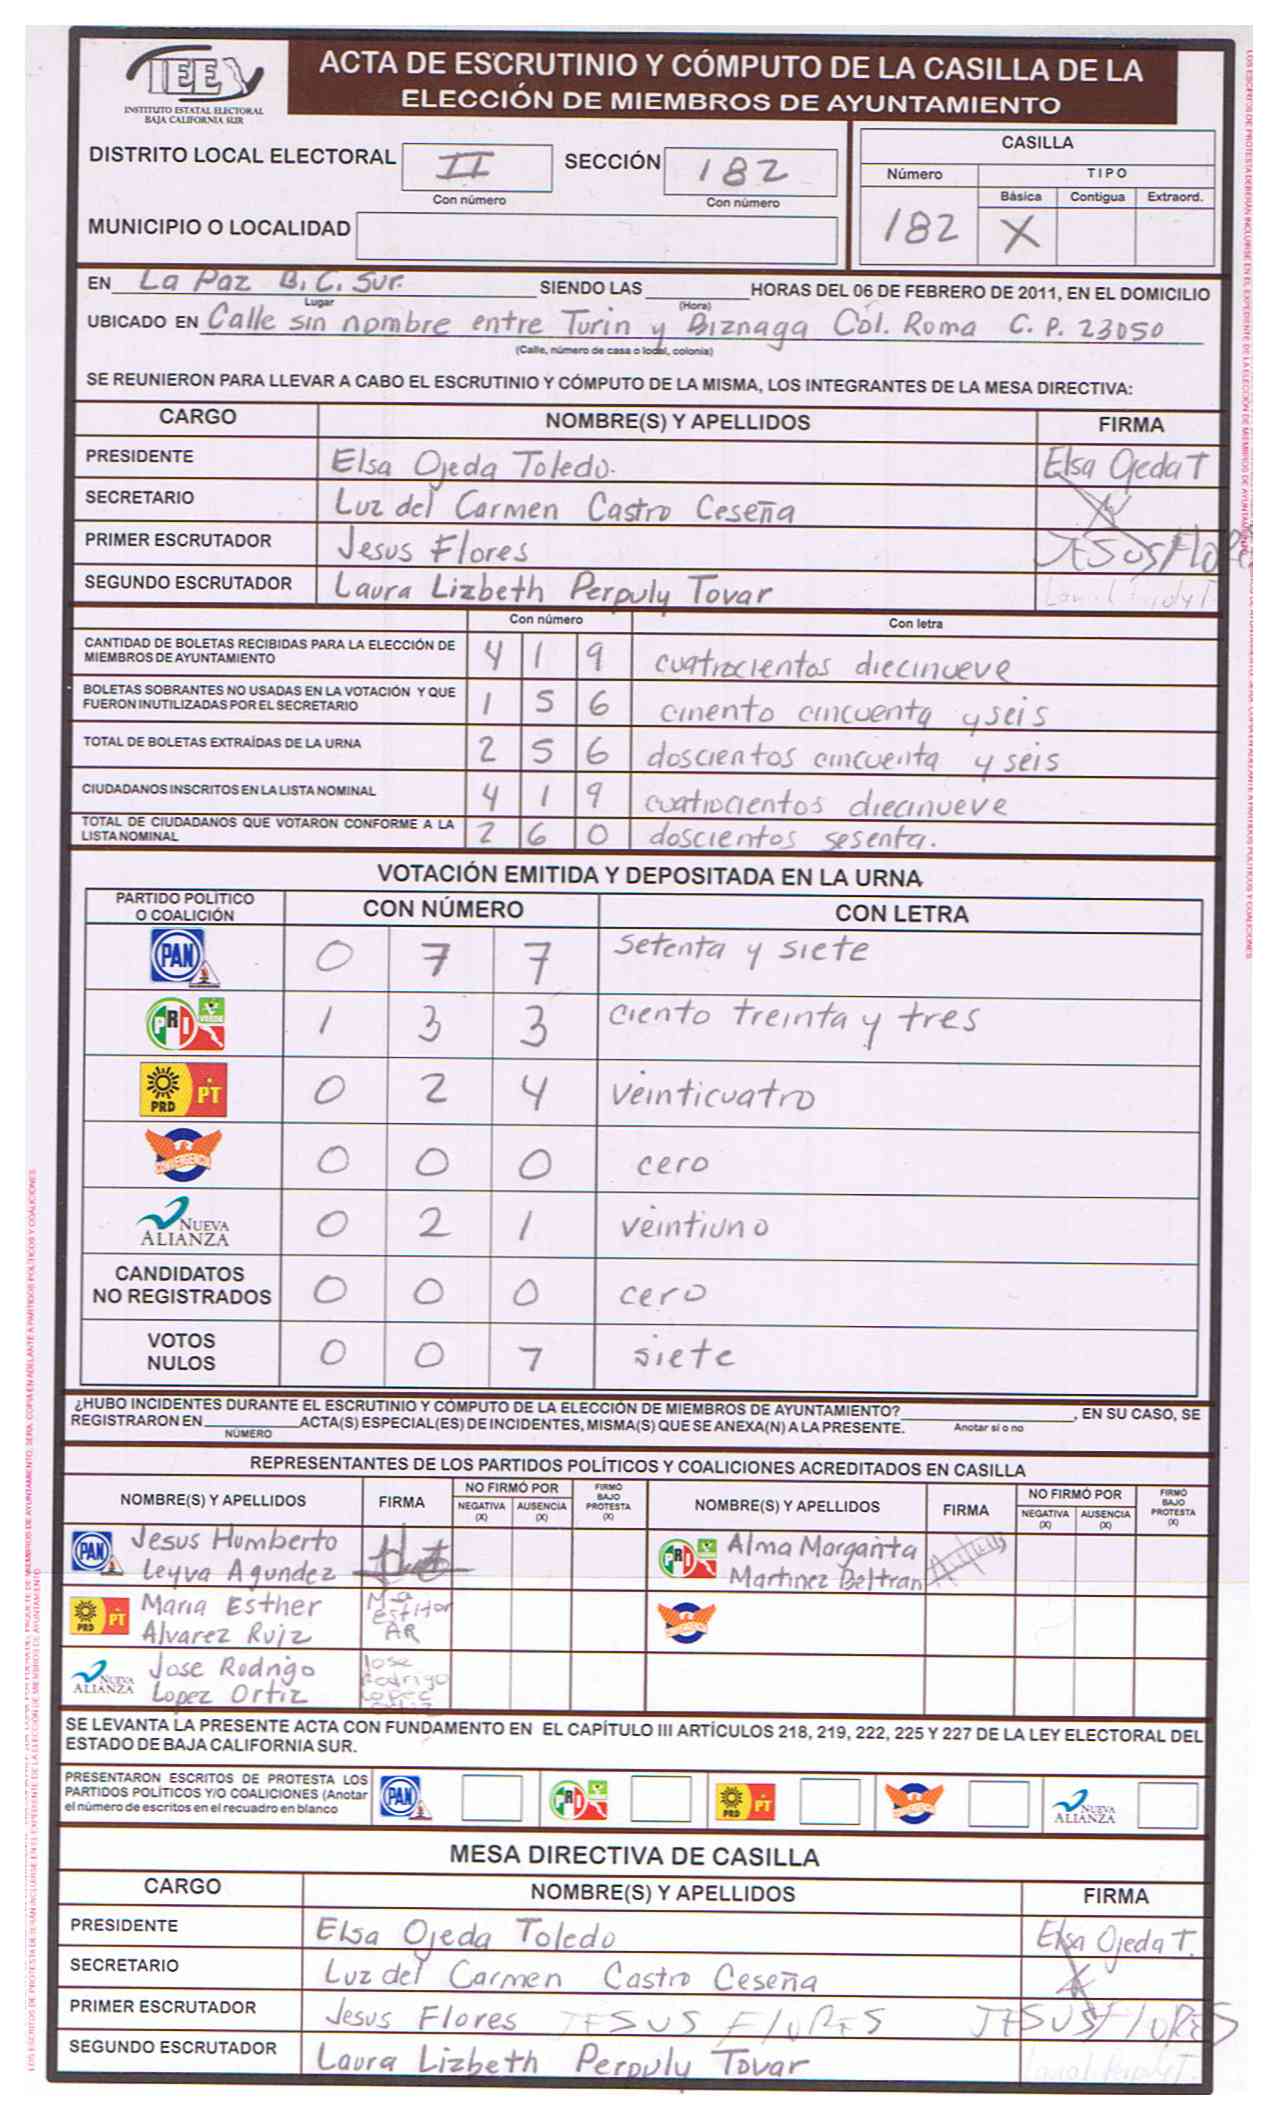 IEE
INSTITUTO ESTATAL ELECTORAL
BAJA CALIFORNIA SUR
ACTA DE ESCRUTINIO Y CÓMPUTO DE LA CASILLA DE LA
ELECCIÓN DE MIEMBROS DE AYUNTAMIENTO
DISTRITO LOCAL ELECTORAL II SECCIÓN 182
Con número Con número
MUNICIPIO O LOCALIDAD
CASILLA
Número TIPO
Básica Contigua Extraord.
182 X
EN La Paz B.C. Sur. SIENDO LAS HORAS DEL 06 DE FEBRERO DE 2011, EN EL DOMICILIO
Lugar (Hora)
UBICADO EN Calle sin nombre entre Turin y Biznaga Col. Roma C.P. 23050
(Calle, número de casa o local, colonia)
SE REUNIERON PARA LLEVAR A CABO EL ESCRUTINIO Y CÓMPUTO DE LA MISMA, LOS INTEGRANTES DE LA MESA DIRECTIVA:
CARGO NOMBRE(S) Y APELLIDOS FIRMA
PRESIDENTE Elsa Ojeda Toledo. Elsa Ojeda T
SECRETARIO Luz del Carmen Castro Ceseña
PRIMER ESCRUTADOR Jesus Flores JESUS FLORES
SEGUNDO ESCRUTADOR Laura Lizbeth Perpuly Tovar
Con número Con letra
CANTIDAD DE BOLETAS RECIBIDAS PARA LA ELECCIÓN DE
MIEMBROS DE AYUNTAMIENTO 4 1 9 cuatrocientos diecinueve
BOLETAS SOBRANTES NO USADAS EN LA VOTACIÓN Y QUE
FUERON INUTILIZADAS POR EL SECRETARIO 1 5 6 cinento cincuenta y seis
TOTAL DE BOLETAS EXTRAÍDAS DE LA URNA 2 5 6 doscientos cincuenta y seis
CIUDADANOS INSCRITOS EN LA LISTA NOMINAL 4 1 9 cuatrocientos diecinueve
TOTAL DE CIUDADANOS QUE VOTARON CONFORME A LA
LISTA NOMINAL 2 6 0 doscientos sesenta.
VOTACIÓN EMITIDA Y DEPOSITADA EN LA URNA
PARTIDO POLÍTICO
O COALICIÓN CON NÚMERO CON LETRA
PAN 0 7 7 setenta y siete
PRI VERDE 1 3 3 ciento treinta y tres
PRD PT 0 2 4 veinticuatro
CONVERGENCIA 0 0 0 cero
NUEVA ALIANZA 0 2 1 veintiuno
CANDIDATOS
NO REGISTRADOS 0 0 0 cero
VOTOS
NULOS 0 0 7 siete
¿HUBO INCIDENTES DURANTE EL ESCRUTINIO Y CÓMPUTO DE LA ELECCIÓN DE MIEMBROS DE AYUNTAMIENTO? , EN SU CASO, SE
REGISTRARON EN ACTA(S) ESPECIAL(ES) DE INCIDENTES, MISMA(S) QUE SE ANEXA(N) A LA PRESENTE. Anotar sí o no
NÚMERO
REPRESENTANTES DE LOS PARTIDOS POLÍTICOS Y COALICIONES ACREDITADOS EN CASILLA
NOMBRE(S) Y APELLIDOS FIRMA NO FIRMÓ POR NEGATIVA (X) AUSENCIA (X) FIRMÓ BAJO PROTESTA (X) NOMBRE(S) Y APELLIDOS FIRMA NO FIRMÓ POR NEGATIVA (X) AUSENCIA (X) FIRMÓ BAJO PROTESTA (X)
PAN Jesus Humberto
Leyva Agundez
PRI Alma Margarita
Martinez Beltran
PRD PT Maria Esther
Alvarez Ruiz
NUEVA ALIANZA Jose Rodrigo
Lopez Ortiz
Jose
Rodrigo
Lopez
SE LEVANTA LA PRESENTE ACTA CON FUNDAMENTO EN EL CAPÍTULO III ARTÍCULOS 218, 219, 222, 225 Y 227 DE LA LEY ELECTORAL DEL
ESTADO DE BAJA CALIFORNIA SUR.
PRESENTARON ESCRITOS DE PROTESTA LOS
PARTIDOS POLÍTICOS Y/O COALICIONES (Anotar
el número de escritos en el recuadro en blanco
PAN PRI PRD PT NUEVA ALIANZA
MESA DIRECTIVA DE CASILLA
CARGO NOMBRE(S) Y APELLIDOS FIRMA
PRESIDENTE Elsa Ojeda Toledo Elsa Ojeda T.
SECRETARIO Luz del Carmen Castro Ceseña
PRIMER ESCRUTADOR Jesus Flores JESUS FLORES JESUS FLORES
SEGUNDO ESCRUTADOR Laura Lizbeth Perpuly Tovar